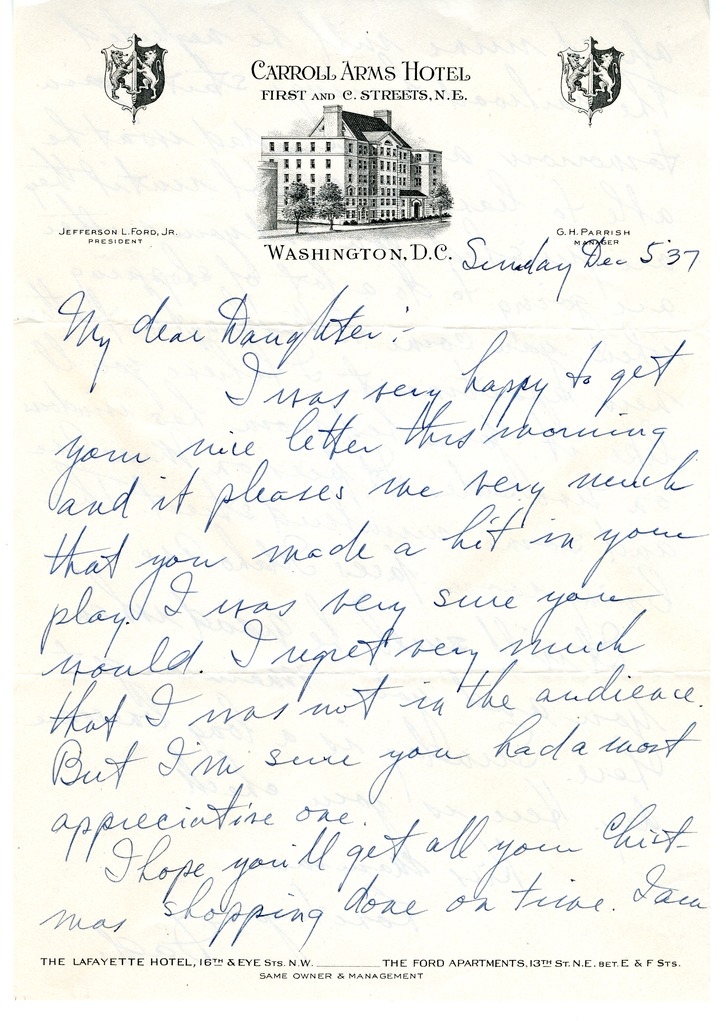 CARROLL ARMS HOTEL
FIRST AND C. STREETS, N.E.
JEFFERSON L. FORD, JR.
PRESIDENT
G. H. PARRISH
MANAGER
WASHINGTON, D.C.
Sunday Dec 5 '37
My dear Daughter:-
I was very happy to get
your nice letter this morning
and it pleases me very much
that you made a hit in your
play. I was very sure you
would. I regret very much
that I was not in the audience.
But I'm sure you had a most
appreciative one.
I hope you'll get all your Christ-
mas shopping done on time. I am
THE LAFAYETTE HOTEL, 16TH & EYE STS. N.W. THE FORD APARTMENTS, 13TH ST. N.E. BET. E & F STS.
SAME OWNER & MANAGEMENT